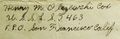 Henry M Olszewski Cox
U.S.S. L.S.T 463
F.P.O. San Francisco Calif.